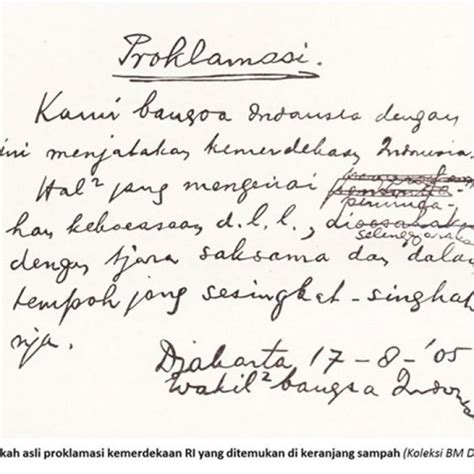 Proklamasi.
Kami bangsa Indonesia dengan
ini menjatakan kemerdekaan Indonesia.
Hal² jang mengenai
peminda-
han kekoeasaan d.l.l.,
diselenggarakan
dengan tjara saksama dan dalam
tempoh jang sesingkat-singkat
nja.
Djakarta 17-8-'05
Wakil² bangsa Indones
kah asli proklamasi kemerdekaan RI yang ditemukan di keranjang sampah (Koleksi BM D